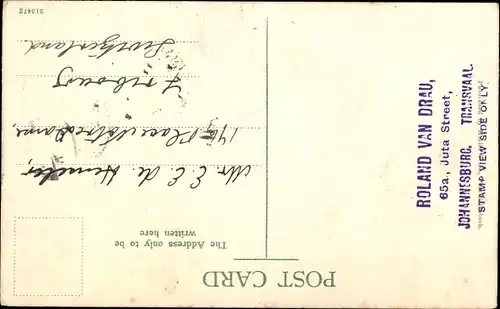 POST CARD
The Address only to be
written here
Mr. E. E. de
Fribourg
Switzerland
213472
ROLAND VAN DRAU,
65a, Juta Street,
JOHANNESBURG, TRANSVAAL.
STAMP VIEW SIDE ONLY